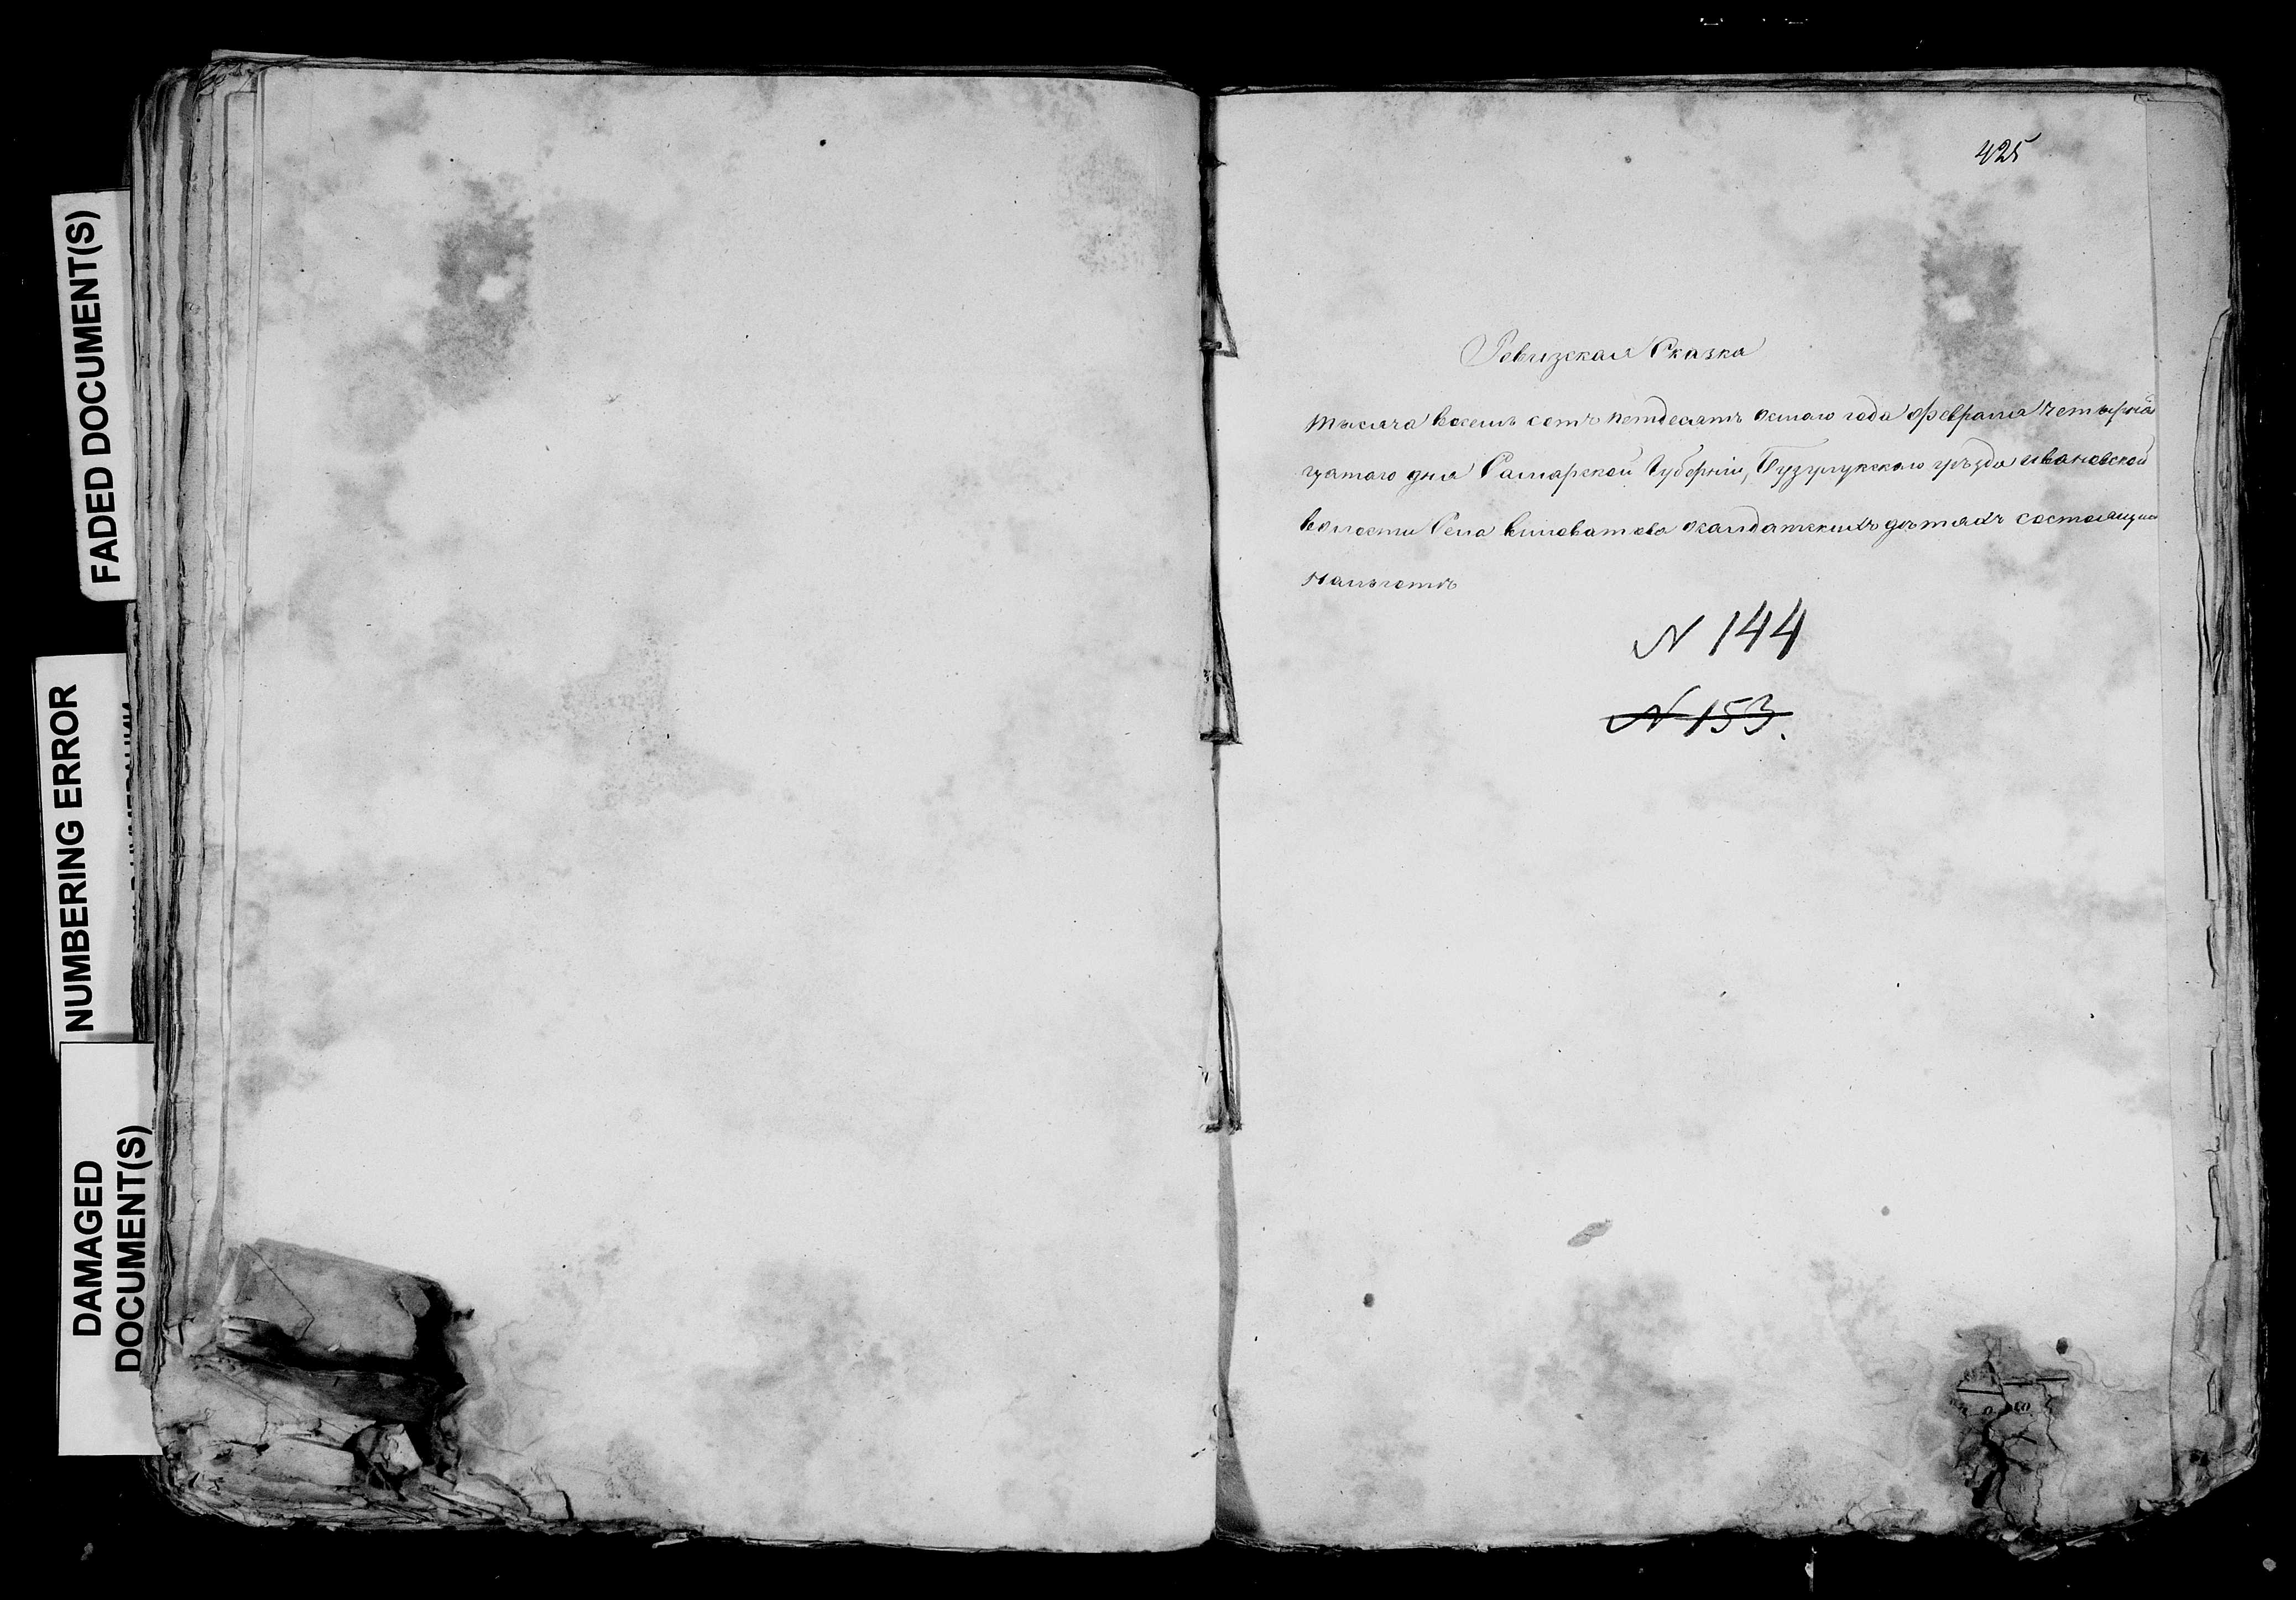 FADED DOCUMENT(S)
NUMBERING ERROR
DAMAGED
DOCUMENT(S)
425
Ревизская Сказка
тысяча восемь сотъ петдесятъ осмаго года февраля четырна
цатаго дня Самарской Губерніи, Бузулукского уѣзда ивановской
волости Села виловатова осалдатскихъ дѣтяхъ состоящихъ
нальготѣ
N 144
N 153.